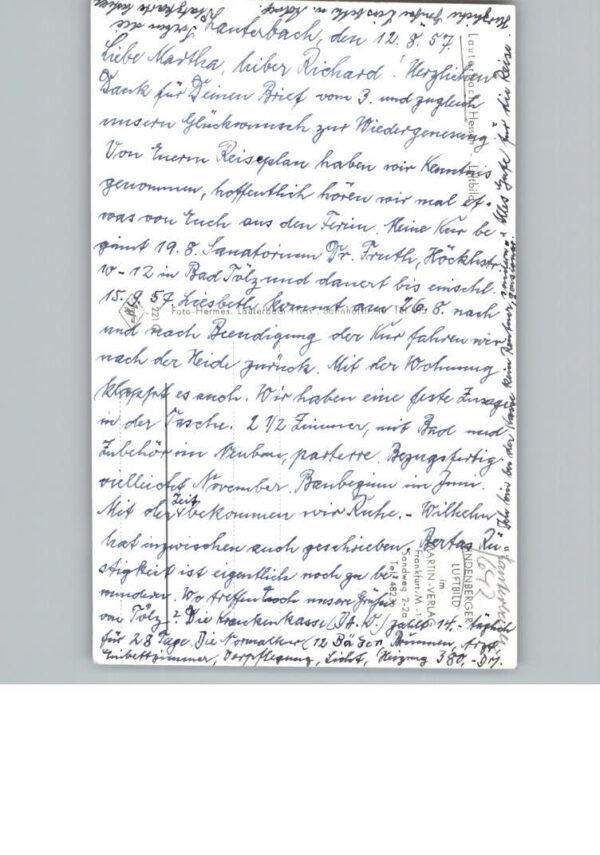 Lauterbach, den 12.8.57.
Liebe Martha, lieber Richard! Herzlichen
Dank für Deinen Brief vom 3. und zugleich
unsern Glückwunsch zur Wiedergenesung.
Von Euerm Reiseplan haben wir Kenntnis
genommen, hoffentlich hören wir mal et-
was von Euch aus den Ferien. Meine Kur be-
ginnt 19.8. Sanatorium Dr. Fruth, Höckhstr.
10-12 in Bad Tölz und dauert bis einschl.
15.9.57. Liesbeth kommt am 26.8. nach
und nach Beendigung der Kur fahren wir
nach der Heide zurück. Mit der Wohnung
klappt es auch. Wir haben eine feste Zusage
in der Tasche. 2 1/2 Zimmer, mit Bad und
Zubehör im Neubau, parterre. Bezugsfertig
vielleicht November. Baubeginn im Juni.
Mit der Zeit bekommen wir Ruhe. - Wilhelm
hat inzwischen auch geschrieben. Bertas Rü-
stigkeit ist eigentlich noch zu be-
wundern. Wo treffen Euch unsere Grüße
von Tölz? Die Krankenkasse (DAK) zahlt 14.- täglich
für 28 Tage. Die Normalkur (12 Bäder, Brunnen, Arzt,
Einbettzimmer, Verpflegung, Licht, Heizung 380,- DM.
Ich bin bei der Kasse kein Rentner, sondern
Alles Gute für die Reise.
Herzliche Grüße Liesbeth u.
Lauterbach Hessen - Luftbild
Foto-Hermes, Lauterbach
LINDENBERGER
LUFTBILD
MARTIN-VERLAG
Frankfurt/M.-1
Sandweg 2-2a